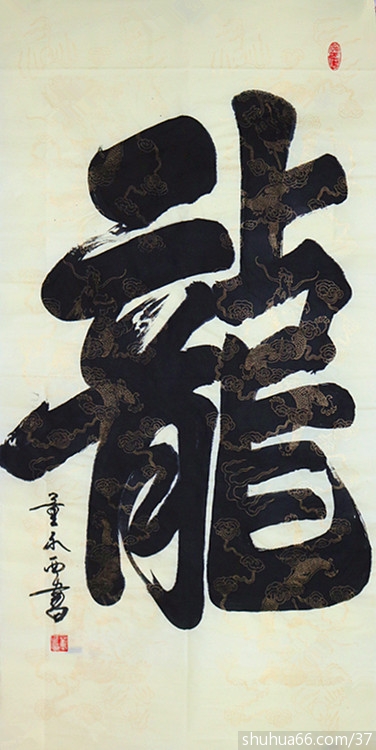 龍
董永西書
shuhua66.com/37